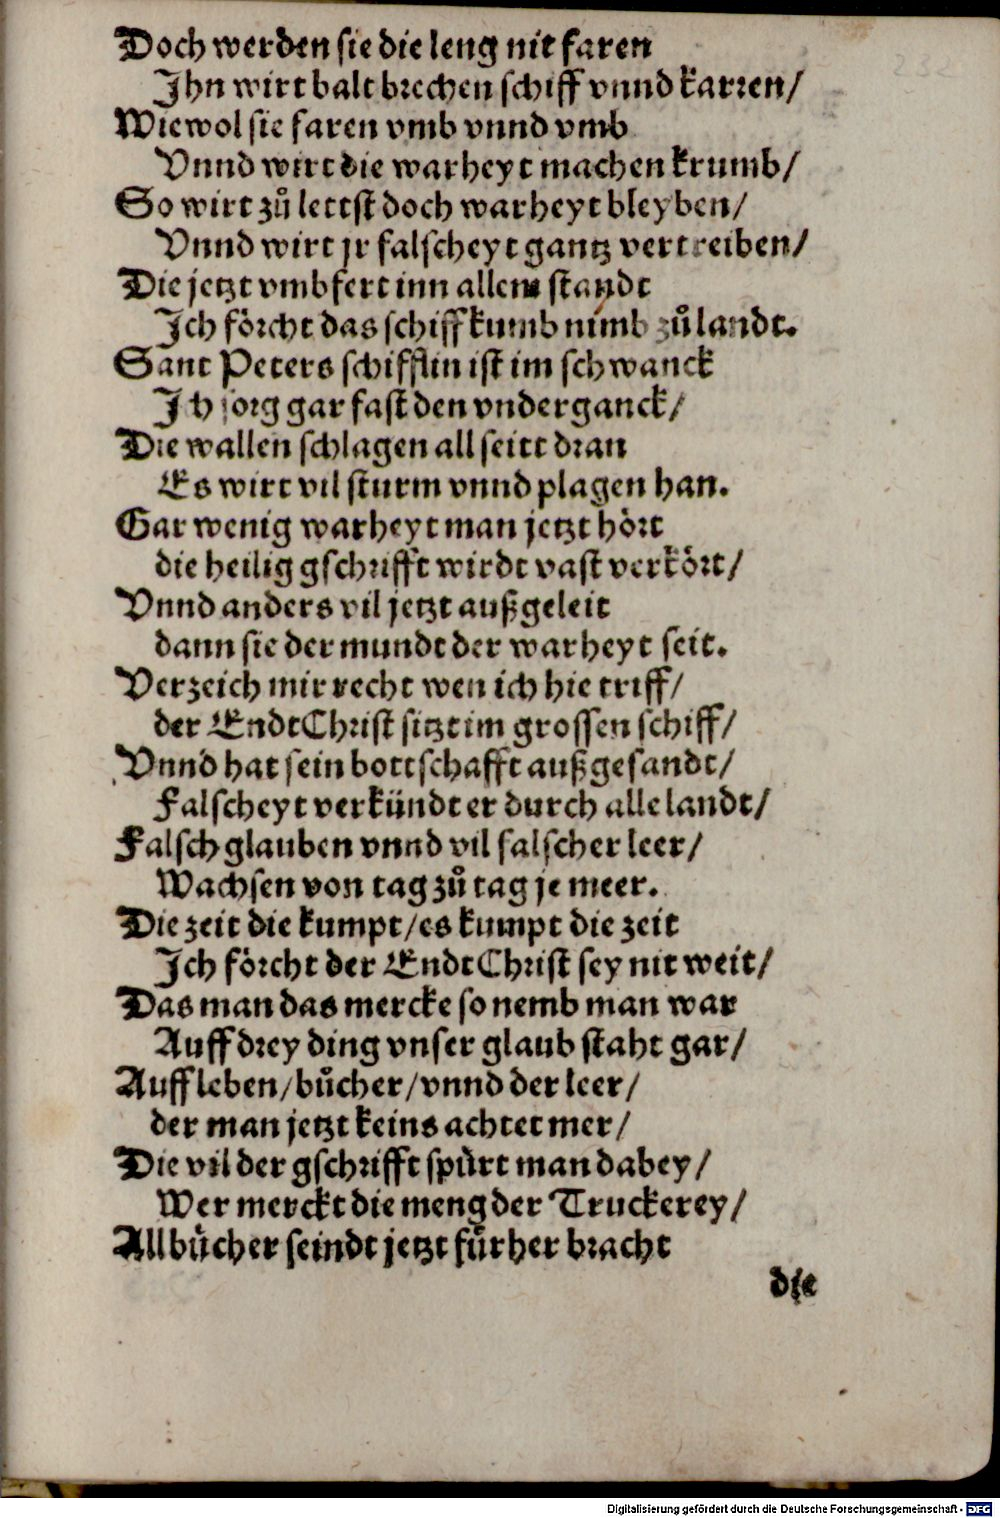 232
Doch werden sie die leng nit faren
Ihn wirt balt brechen schiff vnnd karren/
Wiewol sie faren vmb vnnd vmb
Vnnd wirt die warheyt machen krumb/
So wirt zů lettst doch warheyt bleyben/
Vnnd wirt jr falscheyt gantz vertreiben/
Die jetzt vmbfert inn allem standt
Ich förcht das schiff kumb nimb zů landt.
Sant Peters schifflin ist im schwanck
Ich sorg gar fast den vnderganck/
Die wallen schlagen all seitt dran
Es wirt vil sturm vnnd plagen han.
Gar wenig warheyt man jetzt hört
die heilig gschrifft wirdt vast verkört/
Vnnd anders vil jetzt außgeleit
dann sie der mundt der warheyt seit.
Verzeich mir recht wen ich hie triff/
der EndtChrist sitzt im grossen schiff/
Vnnd hat sein bottschafft außgesandt/
Falscheyt verkündt er durch alle landt/
Falsch glauben vnnd vil falscher leer/
Wachsen von tag zů tag je meer.
Die zeit die kumpt/es kumpt die zeit
Ich förcht der EndtChrist sey nit weit/
Das man das mercke so nemb man war
Auff drey ding vnser glaub staht gar/
Auff leben/bůcher/vnnd der leer/
der man jetzt keins achtet mer/
Die vil der gschrifft spürt man dabey/
Wer merckt die meng der Truckerey/
All bůcher seindt jetzt fürher bracht
die
Digitalisierung gefördert durch die Deutsche Forschungsgemeinschaft - DFG